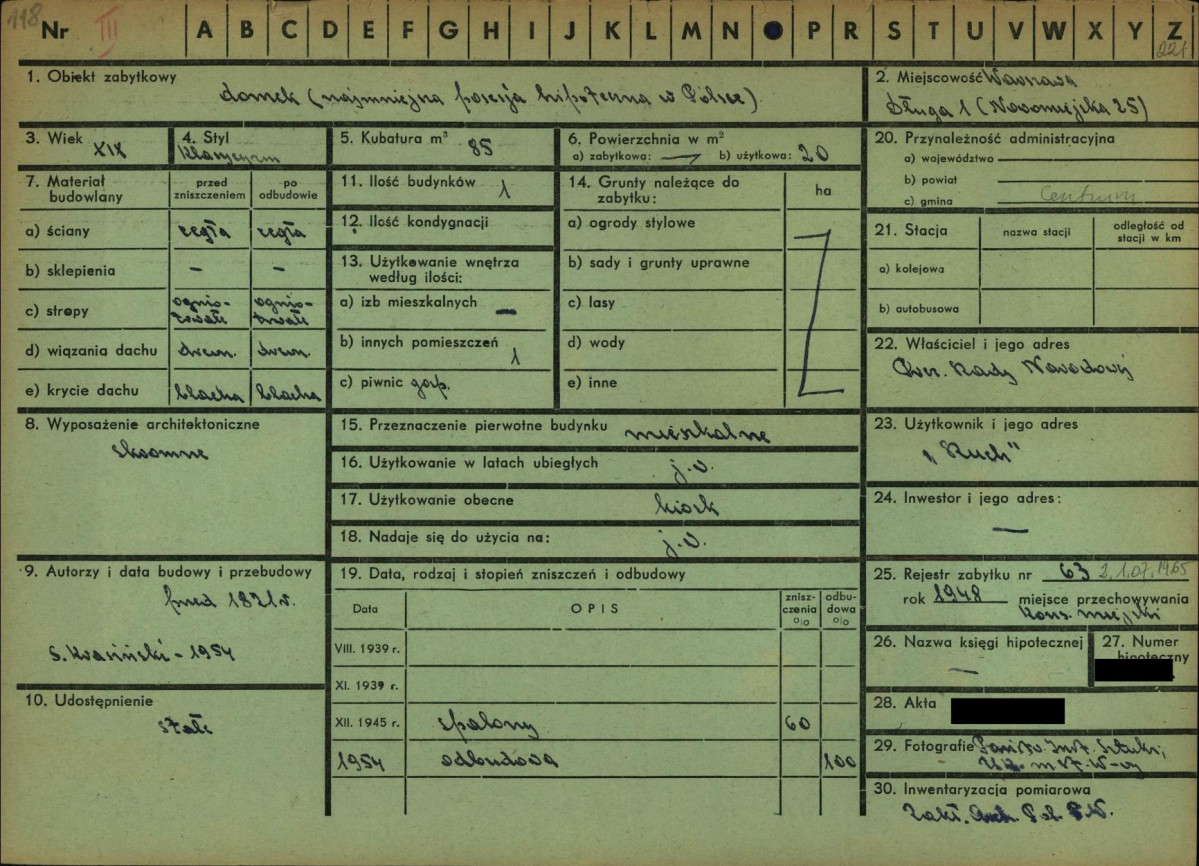 118
Nr III A B C D E F G H I J K L M N P R S T U V W X Y Z
221
1. Obiekt zabytkowy
domek (najmniejsza posesja hipoteczna w Polsce).
2. Miejscowość Warszawa
Długa 1 (Nowomiejska 25)
3. Wiek XIX
4. Styl
klasycyzm
5. Kubatura m³ 85
6. Powierzchnia w m²
a) zabytkowa: — b) użytkowa: 20
20. Przynależność administracyjna
a) województwo
b) powiat
c) gmina Centrum
7. Materiał budowlany
przed zniszczeniem
po odbudowie
a) ściany cegła cegła
b) sklepienia – –
c) stropy ognio-trwałe ognio-trwałe
d) wiązania dachu drewn. drewn.
e) krycie dachu blacha blacha
11. Ilość budynków 1
12. Ilość kondygnacji
13. Użytkowanie wnętrza według ilości:
a) izb mieszkalnych —
b) innych pomieszczeń 1
c) piwnic gosp.
14. Grunty należące do zabytku:
ha
a) ogrody stylowe
b) sady i grunty uprawne
c) lasy
d) wody
e) inne
21. Stacja
nazwa stacji
odległość od stacji w km
a) kolejowa
b) autobusowa
22. Właściciel i jego adres
Rady Narodowej
8. Wyposażenie architektoniczne
skromne
15. Przeznaczenie pierwotne budynku mieszkalne
16. Użytkowanie w latach ubiegłych j.w.
17. Użytkowanie obecne kiosk
18. Nadaje się do użycia na: j.w.
23. Użytkownik i jego adres
„Ruch"
24. Inwestor i jego adres:
—
9. Autorzy i data budowy i przebudowy
przed 1821 r.
S. Krasiński – 1954
10. Udostępnienie
stałe
19. Data, rodzaj i stopień zniszczeń i odbudowy
Data OPIS zniszczenia % odbudowa %
VIII. 1939 r.
XI. 1939 r.
XII. 1945 r. spalony 60
1954 odbudowa 100
25. Rejestr zabytku nr 63 z 1.07.1965
rok 1948 miejsce przechowywania
Kons. miejski
26. Nazwa księgi hipotecznej
—
27. Numer hipoteczny
28. Akta
29. Fotografie Państw. Inst. Sztuki,
30. Inwentaryzacja pomiarowa
Zakł. Arch. Pol. P.W.